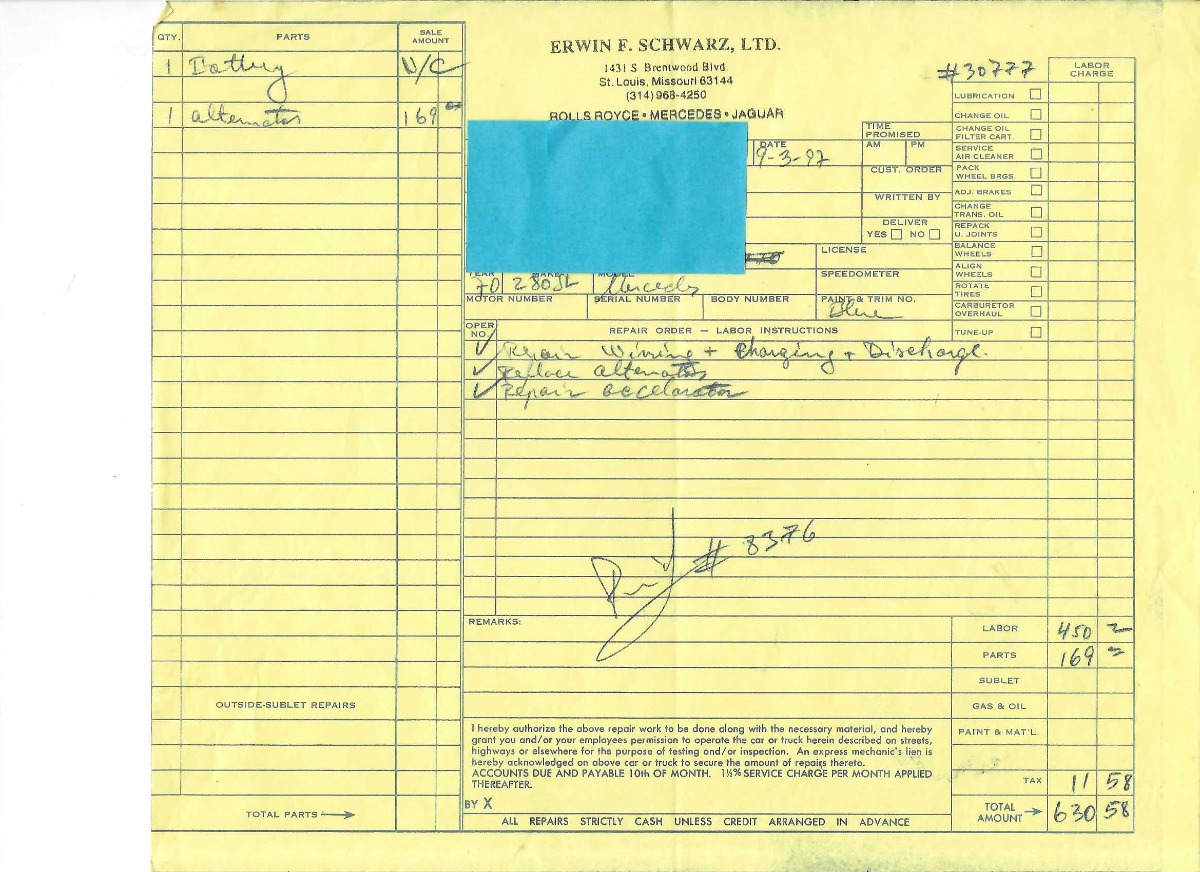 QTY. PARTS SALE AMOUNT
1 Battery N/C
1 alternator 169 00
OUTSIDE-SUBLET REPAIRS
TOTAL PARTS
ERWIN F. SCHWARZ, LTD.
1431 S. Brentwood Blvd.
St. Louis, Missouri 63144
(314) 968-4250
ROLLS ROYCE • MERCEDES • JAGUAR
#30777
LABOR CHARGE
DATE
9-3-97
TIME PROMISED
AM PM
CUST. ORDER
WRITTEN BY
DELIVER
YES NO
LICENSE
SPEEDOMETER
YEAR MAKE MODEL
70 280SL Mercedes
MOTOR NUMBER SERIAL NUMBER BODY NUMBER PAINT & TRIM NO.
Blue
LUBRICATION
CHANGE OIL
CHANGE OIL FILTER CART.
SERVICE AIR CLEANER
PACK WHEEL BRGS.
ADJ. BRAKES
CHANGE TRANS. OIL
REPACK U. JOINTS
BALANCE WHEELS
ALIGN WHEELS
ROTATE TIRES
CARBURETOR OVERHAUL
TUNE-UP
OPER NO. REPAIR ORDER — LABOR INSTRUCTIONS
Repair Wirring + Charging + Discharge.
Replace alternator
Repair accelarator
Paid # 8376
REMARKS:
LABOR 450
PARTS 169
SUBLET
GAS & OIL
PAINT & MAT'L.
TAX 11 58
TOTAL AMOUNT 630 58
I hereby authorize the above repair work to be done along with the necessary material, and hereby
grant you and/or your employees permission to operate the car or truck herein described on streets,
highways or elsewhere for the purpose of testing and/or inspection. An express mechanic's lien is
hereby acknowledged on above car or truck to secure the amount of repairs thereto.
ACCOUNTS DUE AND PAYABLE 10th OF MONTH. 1½% SERVICE CHARGE PER MONTH APPLIED
THEREAFTER.
BY X
ALL REPAIRS STRICTLY CASH UNLESS CREDIT ARRANGED IN ADVANCE